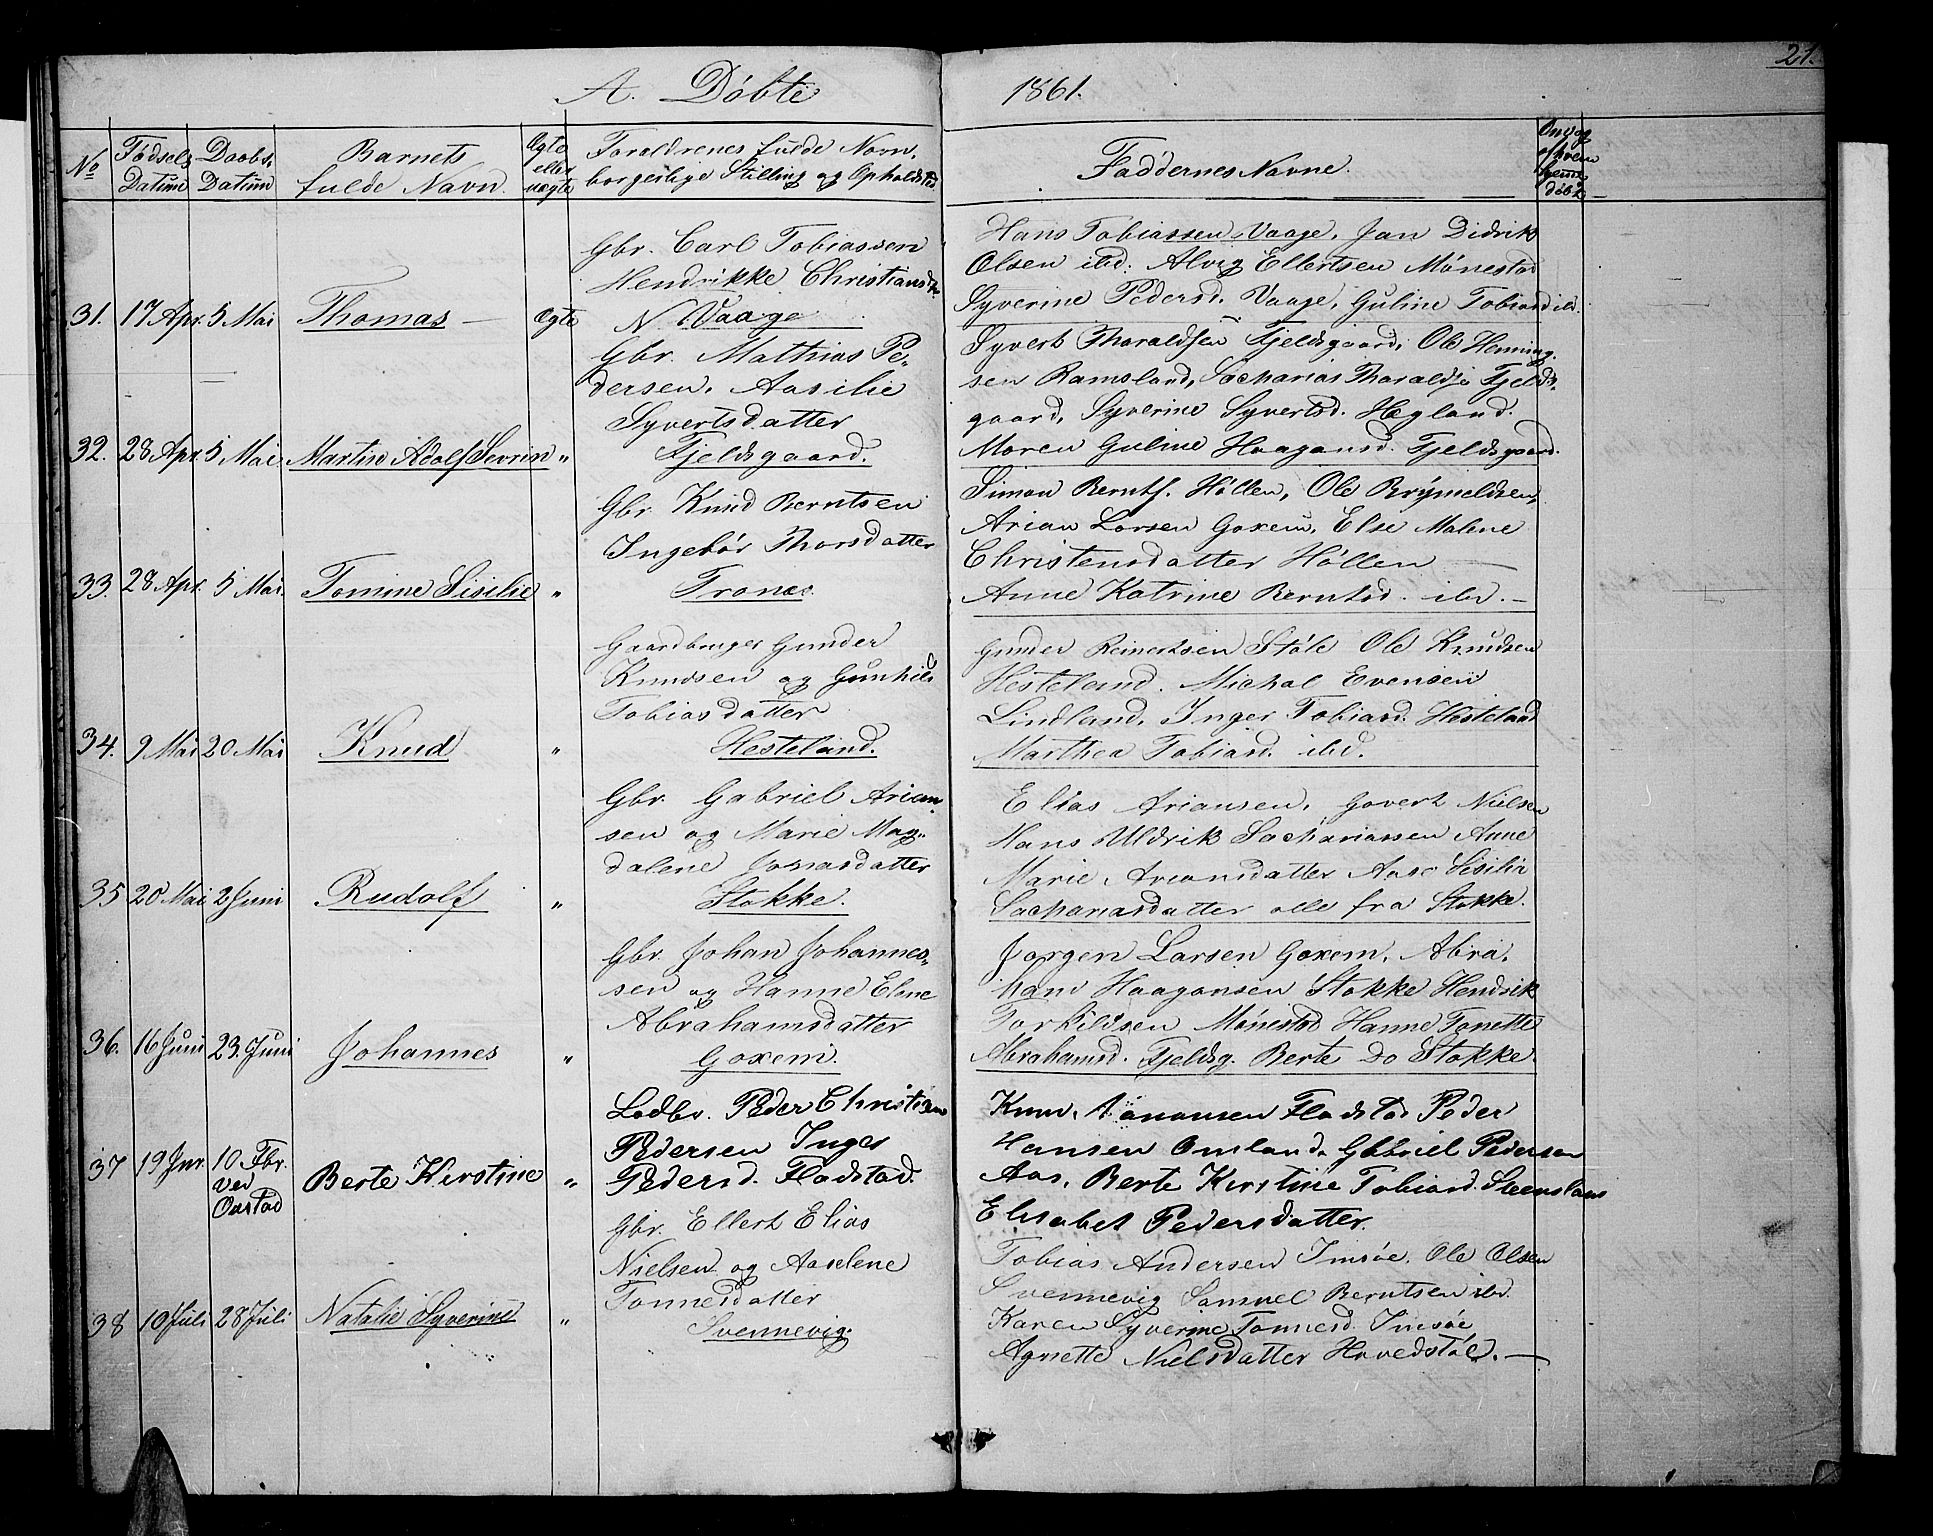 21.
A. Döbte 1861.
No
Födsels Datum
Daabs Datum
Barnets fulde Navn.
Ægte eller uægte
Foraldrenes fulde Navn, borgerlige Stilling og Opholdsted
Faddernes Navne.
Om og af hvem hjemmedöbt
31. 17 Apr. 5 Mai Thomas Ægte
Gbr. Carl Tobiassen
Hendrikke Christiansdtr
N. Vaage
Hans Tobiassen Vaage, Jan Didrik
Olsen ibd. Alvig Ellertsen Mönestad
Syverine Pedersd. Vaage, Guline Tobiasd ibd.
32. 28 Apr. 5 Mai. Martin Adolf Sevrin "
Gbr. Mathias Pe-
dersen, Aasilie
Syvertsdatter
Fjeldsgaard.
Syvert Tharaldsen Fjeldsgaard, Ole Henning-
sen Ramsland, Sacharias Tharalds. Fjelds-
gaard, Syverine Syvertsd. Hægland.
Maren Guline Haagansd. Fjeldsgaard.
33. 28 Apr. 5 Mai. Tomine Sisilie "
Gbr. Knud Berntsen
Ingebör Thorsdatter
Tronæs.
Simon Bernts. Höllen, Ole Brÿnieldsen,
Arian Larsen Goxem, Else Malene
Christensdatter Höllen
Anne Katrine Berntsd. ibd.
34. 9 Mai 20 Mai Knud "
Gaardbruger Gunder
Knudsen og Gunhild
Tobiasdatter
Hesteland.
Gunder Reinertsen Stöle Ole Knudsen
Hesteland. Michal Evensen
Lindland, Inger Tobiasd. Hesteland
Marthea Tobiasd. ibd.
35 20 Mai 2 Juni Rudolf "
Gbr. Gabriel Arian-
sen og Marie Mag-
dalene Jonasdatter
Stokke.
Elias Ariansen, Govert Nielsen
Hans Uldrik Sachariassen Anne
Marie Ariansdatter Aase Sisilia
Sachariasdatter alle fra Stokke.
36. 16 Juni 23. Juni Johannes "
Gbr. Johan Johannes-
sen og Hanne Elene
Abrahamsdatter
Goxem.
Jorgen Larsen Goxem, Abra-
ham Haagansen Stokke Hendrik
Torkildsen Mönestad Hanne Tonette
Abrahamsd. Fjeldsg. Berte Do Stokke
37 19 Jnr. 10 Fbr. ved Oastad Berte Kirstine "
Ladbr. Peder Christian
Pedersen Inger
Pedersd. Fladstad.
Knud Aanansen Fladstad Peder
Hansen Omland, Gabriel Pedersen
Aas, Berte Kirstine Tobiasd. Steensland
Elisabet Pedersdatter.
38 10 Juli 28 Juli Natalie Syverine "
Gbr. Ellert Elias
Nielsen og Aaselene
Tonnesdatter
Svennevig.
Tobias Andersen Imsöe, Ole Olsen
Svennevig Samuel Berntsen ibd.
Karen Syverine Tonnesd. Imsöe
Agnette Nielsdatter Hovedstöl.